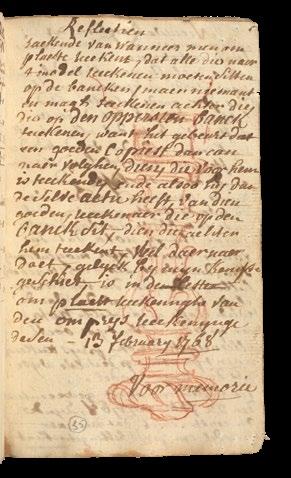 Reflectien
raekende van wanneer men om
plaetse teekent, dat alle die naer
t model teekenen moeten sitten
op de bancken, maer niemant
en magh teekenen achter die
die op den oppersten banck
teekenen, want het gebeurt dat
een goeden Copïest dan can
naer volghen die voor hem
is teekende, ende alsoo hij dan
deselve actie heeft van dien
goeden teekenaer die op den
banck sit, dien die achter
hem teekent wel daer naer
doet, gelyck bij mijn
geschiet is in de
om plaets teekeninghe van
den om prijs teekeninge
desen 13 february 1768
Voor memorie
35